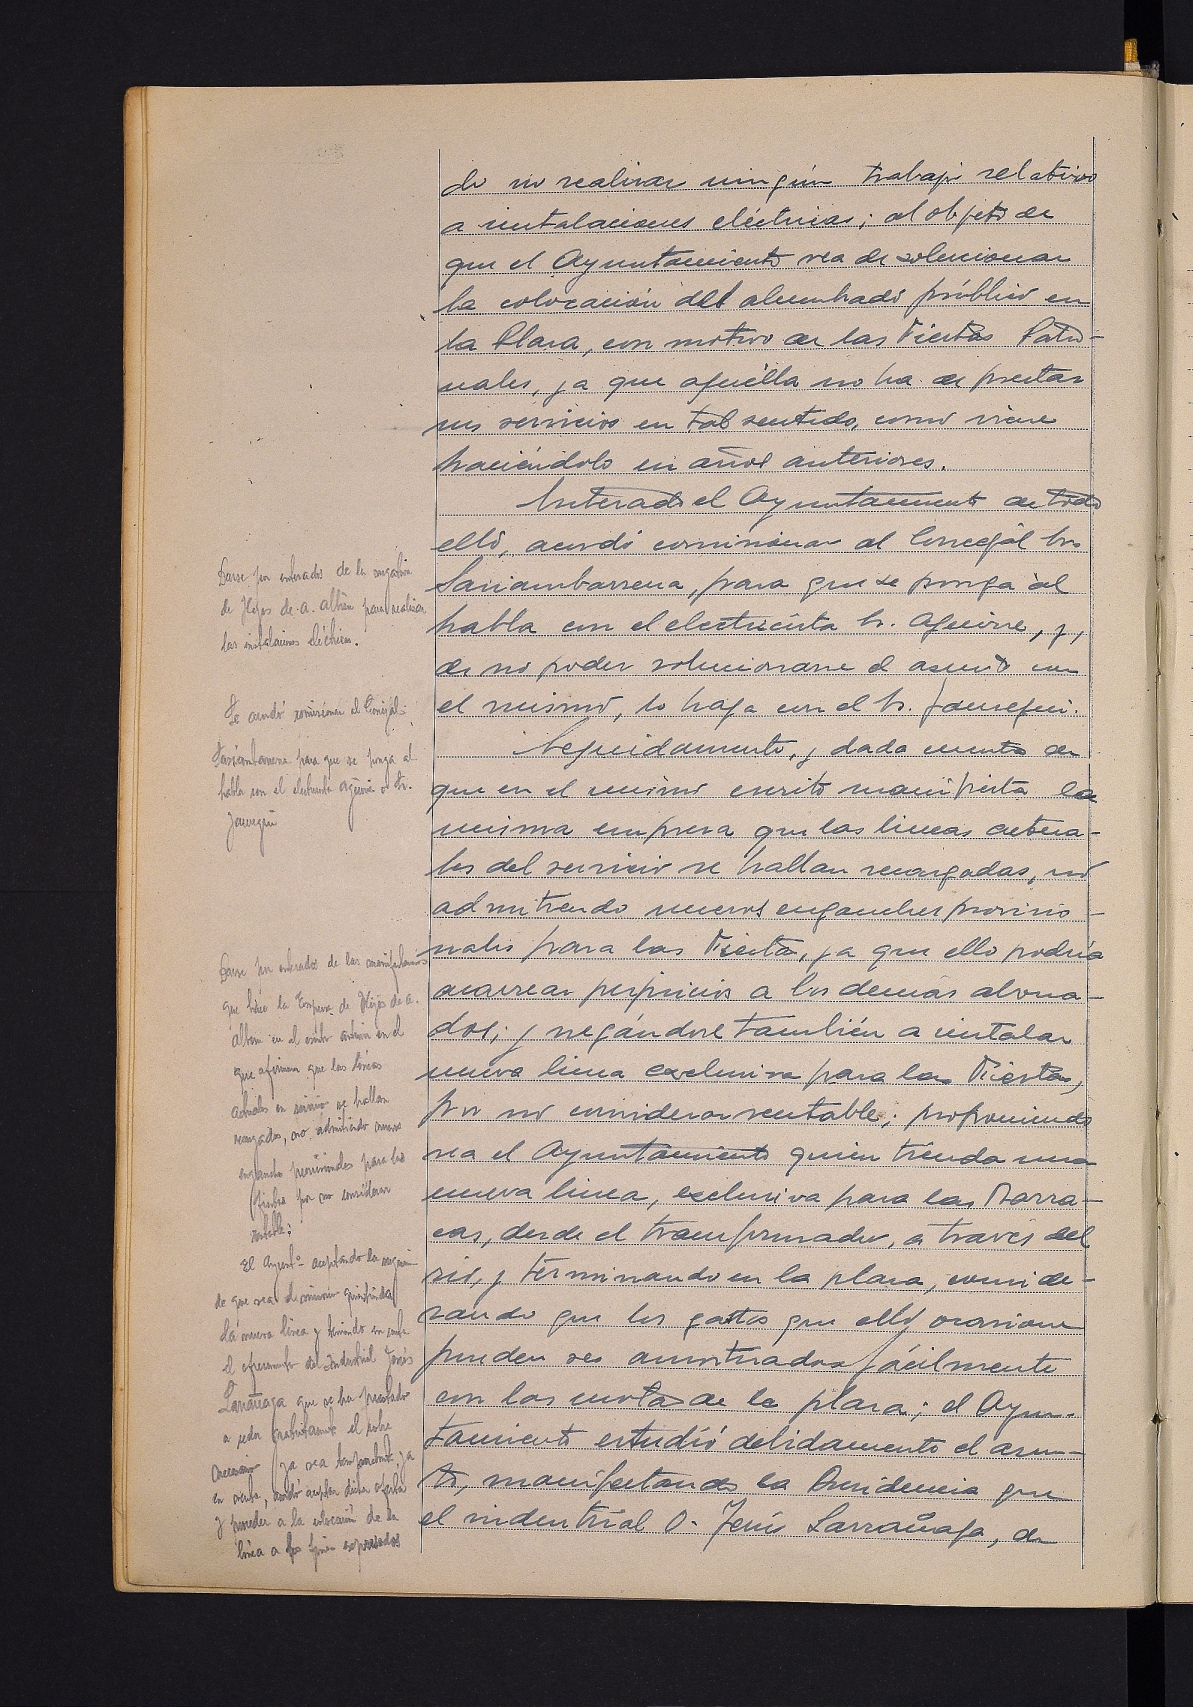 de no realizar ningún trabajo relativo
a instalaciones eléctricas; al objeto de
que el Ayuntamiento vea de solucionar
la colocación del alumbrado público en
la Plaza, con motivo de las Fiestas Patro-
nales, ya que aquélla no ha de prestar
sus servicios en tal sentido, como viene
haciéndolo en años anteriores.
Enterado el Ayuntamiento de todo
ello, acordó comisionar al Concejal Sr.
Sariambarrena, para que se ponga al
habla con el electricista Sr. Aguirre, y,
de no poder solucionarse el asunto con
el mismo, lo haga con el Sr. Jauregui.
Seguidamente, y dada cuenta de
que en el mismo escrito manifiesta la
misma empresa que las lineas actua-
les del servicio se hallan recargadas, no
admitiendo nuevos enganches provisio-
nales para las Fiestas, ya que ello podría
acarrear perjuicios a los demás abona-
dos; y negándose también a instalar
nueva linea exclusiva para las Fiestas,
por no considerar rentable; proponiendo
sea el Ayuntamiento quien tienda una
nueva linea, exclusiva para las Barra-
cas, desde el transformador, a través del
río, y terminando en la plaza, conside-
rando que los gastos que ello ocasione
pueden ser amortizados fácilmente
con las cuotas de la plaza; el Ayun-
tamiento estudió debidamente el asun-
to, manifestando la Presidencia que
el industrial D. Jesús Larrañaga, de
Darse por enterados de la negativa
de Hijos de A. Albrea para realizar
las instalaciones eléctricas.
Se acordó comisionar al Concejal
Sariambarrena para que se ponga al
habla con el electricista Aguirre o Sr.
Jauregui
Darse por enterados de las manifestaciones
que hace la Empresa de Hijos de A.
en el escrito en el
que afirman que las lineas
actuales en servicio se hallan
recargadas, no admitiendo nuevos
enganches provisionales para las
fiestas por no considerar
rentable;
El Ayunt.º aceptando la
de que sea
la nueva linea y teniendo en
el ofrecimiento del Industrial Jesús
Larrañaga que se ha prestado
a ceder gratuitamente el cobre
necesario ya sea ya
en , acordó aceptar dicha oferta
y proceder a la colocación de la
linea a los fines expresados